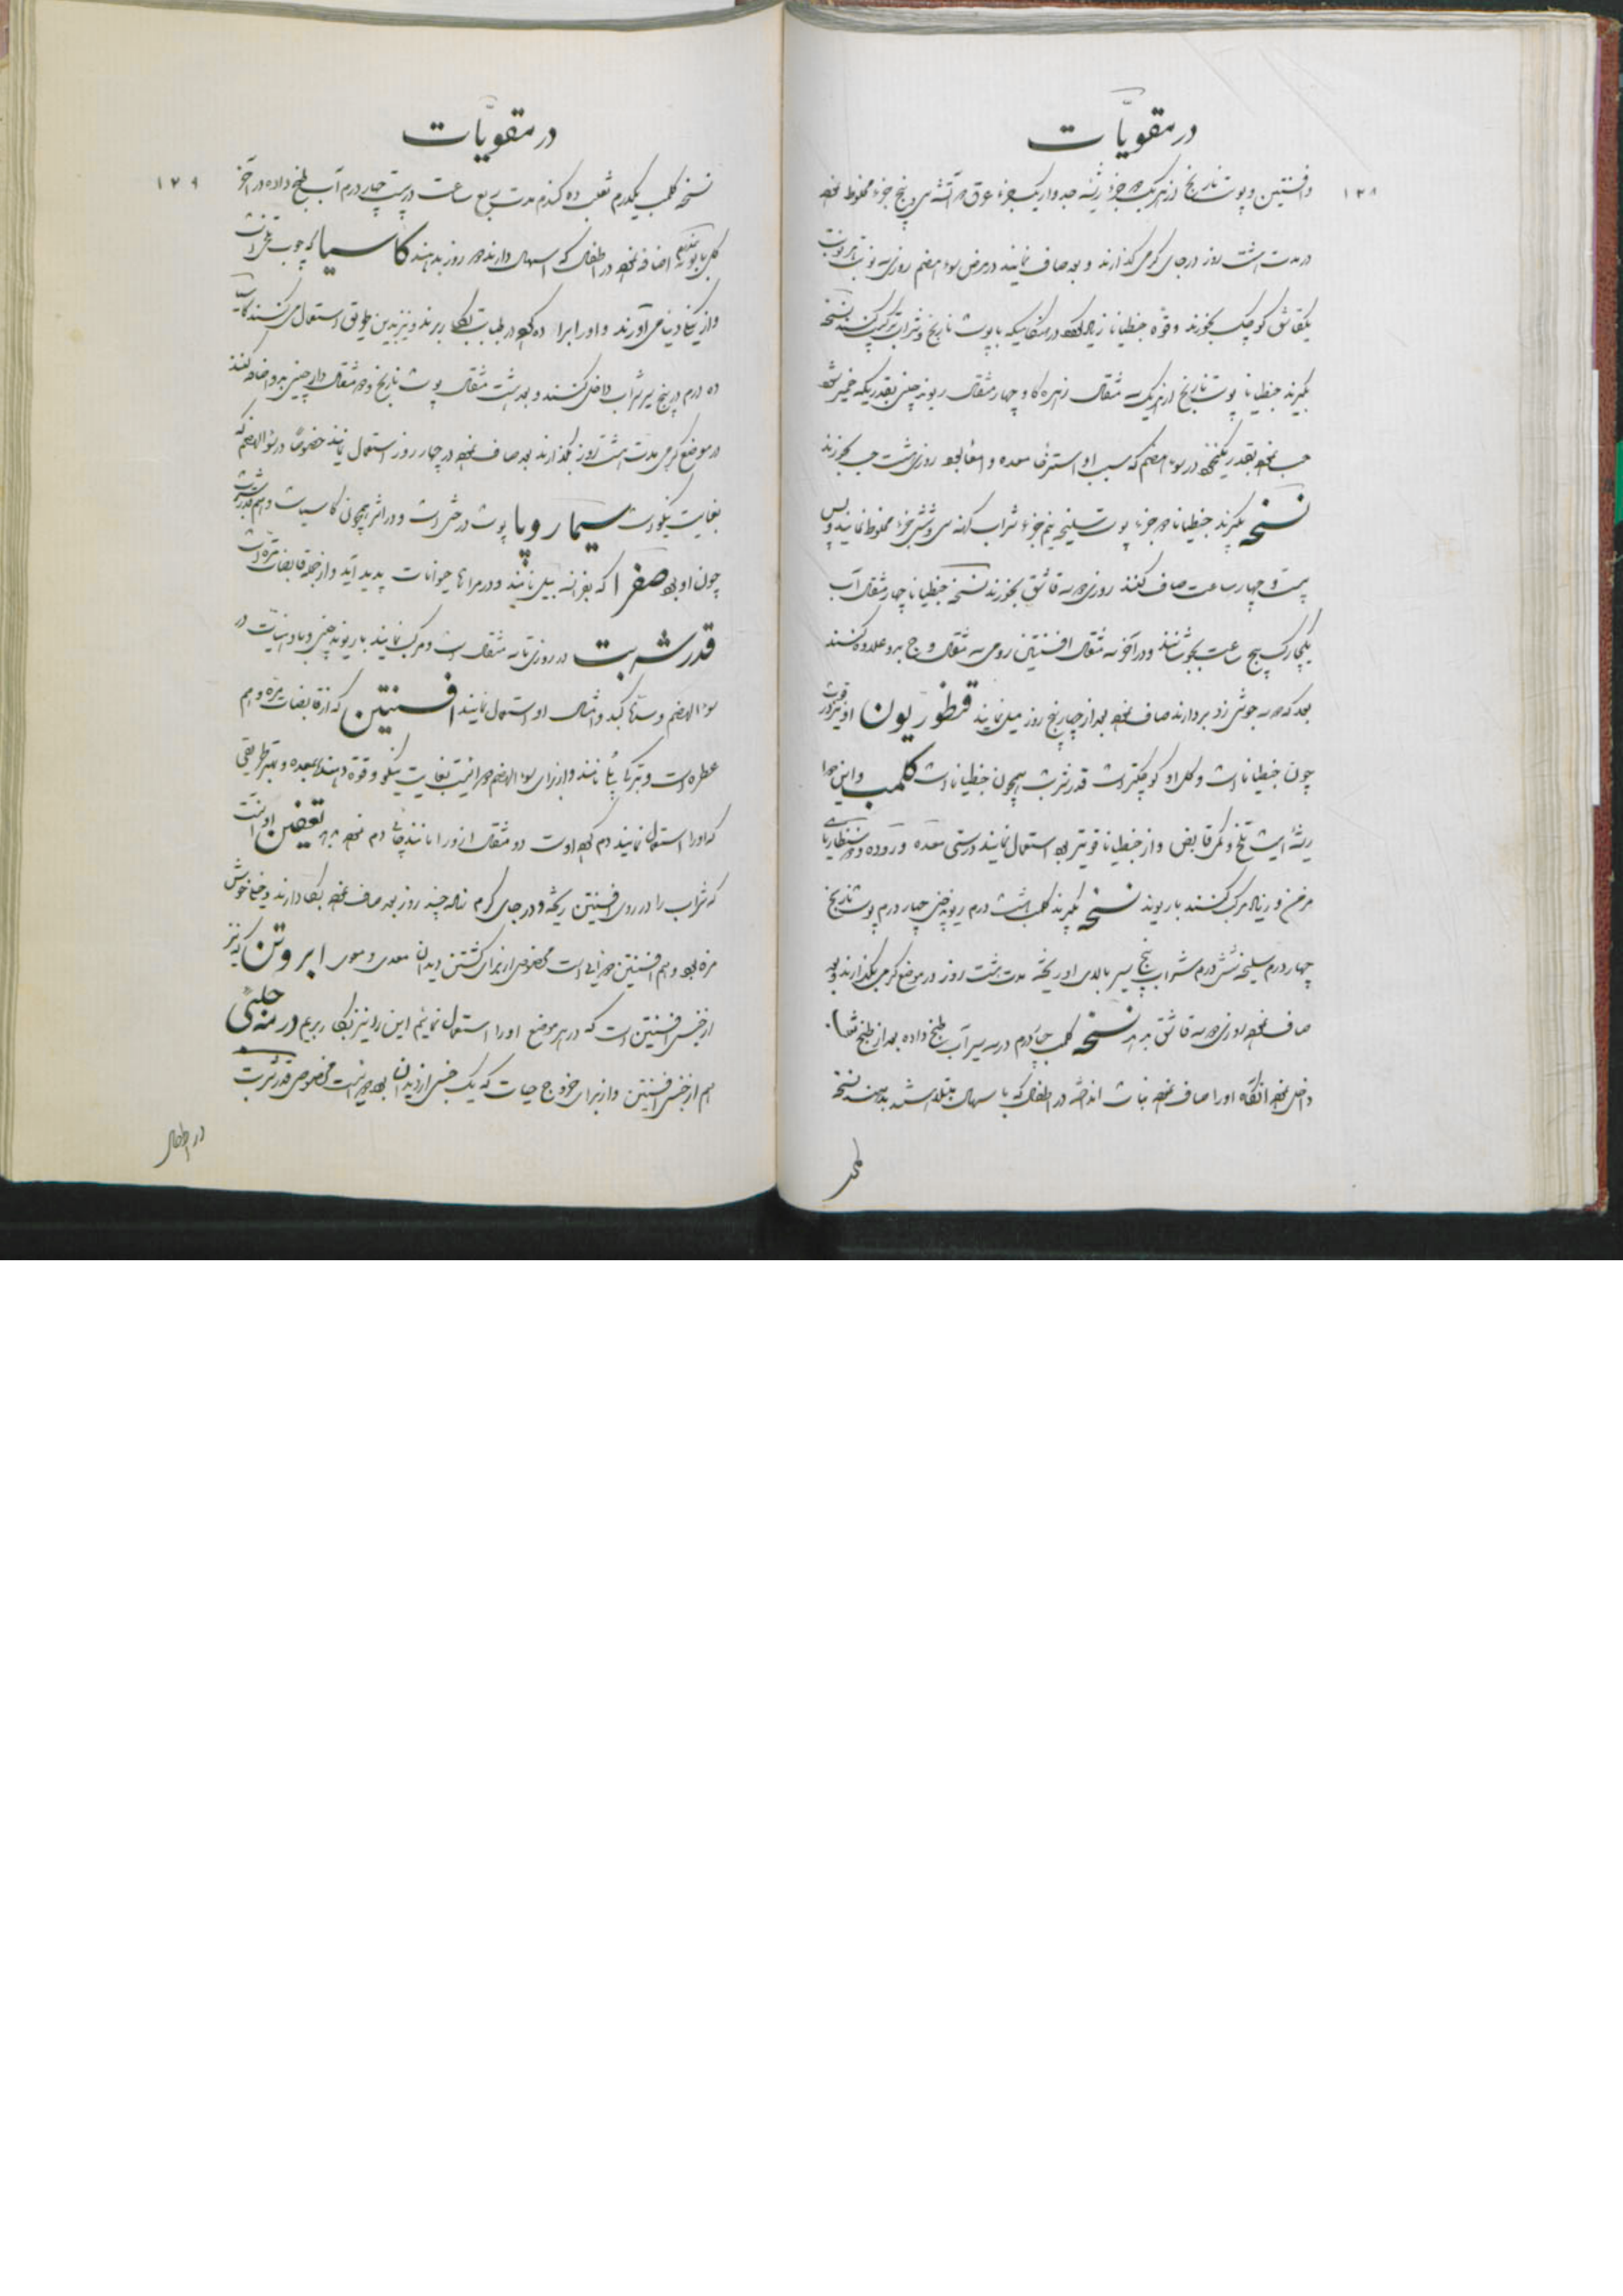 در مقویّات
۱۲۸
وافسنتین و پوست نارنج از هریک دو جزء ریشه جدوار یکجزء عرق دو آتشه سی و پنج جزء مخلوط نموده
در مدت هشت روز در جای گرمی گذارند و بعد صاف نمایند در مرض سوء هضم روزی سه نوبت هر نوبت
یکقاشق کوچک بخورند و قوّه جنطیانا زیاد گردد در هنگامیکه با پوست نارنج و شراب ترکیب کنند نسخه
بگیرند جنطیانا پوست نارنج از هریک سه مثقال زهره گاو چهار مثقال ریوند چینی بقدریکه خمیر شود
حب نموده بقدر یکنخود در سوء هضم که سبب او استرخا معده و امعا بوده روزی هشت حب بخورند
نسخه بگیرند جنطیانا دو جزء پوست سلیخه نیم جزء شراب کهنه سی و شش جزء مخلوط نمایند و پس
بیست و چهار ساعت صاف کنند روزی دو سه قاشق بخورند نسخه جنطیانا چهار مثقال آب
یکچارک پنج ساعت بجوشانند و در آخر سه مثقال افسنتین رومی سه مثقال وج بدو علاوه کنند
بعد که دو سه جوشی زد بردارند صاف نموده بعد از چهار پنج روز میل نمایند قنطوریون او نیز در قوت
چون جنطیانا است و گل او کوچکتر است قدر شربت همچون جنطیانا است کلمب و این دوا
ریشه ایست تلخ و کمی قابض و از جنطیانا قویتر بوده استعمال نمایند در سستی معده و روده و ذوسنطاریای
مزمن و زیاد مرکب کنند با ریوند نسخه بگیرند کلمب هشت درم ریوند چینی چهار درم پوست نارنج
چهار درم سلیخه شش درم شراب پنج سیر بالای او ریخته مدت هشت روز در موضع گرمی بگذارند و بعد
صاف نموده روزی دو سه قاشق بدهند نسخه کلمب چهار درم در سه سیر آب طبخ داده بعد از طبخ
داخل نموده آنگاه او را صاف نموده نبات انداخته در اطفال که با اسهال مبتلا باشند بدهند نسخه
در مقویّات
۱۲۹
نسخه کلمب یکدرم ثعلب ده گندم مدت ربع ساعت در بیست چهار درم آب طبخ داده در آخر
گل بابونه اضافه نموده در اطفال که اسهال دارند دو روز بدهند کاسیا که چوب تلخی است
و از ینگی دنیا می‌آورند و او را برا ده کرده در طبابت بکار برند و نیز بدین طریق استعمال می‌کنند کاسیا
ده درم در پنج سیر شراب داخل کنند و بعد هشت مثقال پوست نارنج و دو مثقال دارچینی بدو اضافه کنند
در موضع گرمی مدت هشت روز بگذارند بعد صاف نموده در چهار روز استعمال نمایند خصوصاً در سوء الهضم که
بغایت نیکو است سیماروپا پوست درختی است و در اثر همچون کاسیا است و هم قدر شربت
چون او بوده صفرا که بفرانسه بیل نامند و در مرارهای حیوانات پدید آید و از جمله قابضات مرّه است
قدر شربت در روزی تا سه مثقال است و مرکب نمایند با ریوند چینی و با دهنیات در
سوء الهضم و سدّهای کبد و امثال او استعمال نمایند افسنتین که از قابضات مرّه و هم
عطره است و بترکی نامند و از برای سوء الهضم دوائیست بغایت نیکو و قوّه دهنده معده و بهتر طریقی
که او را استعمال نمایند دم کرده اوست دو مثقال از او را مانند چائی دم نموده بدهند تعفین او آنست
که شراب را در روی افسنتین ریخته و در جای گرم نهاده چند روز بعد صاف نموده بکار دارند و خیلی خوش
مزه بوده و هم افسنتین دوائی است مخصوص از برای کشتن دیدان معدی و معوی ابروتن که نیز
از جنس افسنتین است که در هر موضع او را استعمال نمائیم این را نیز بکار بریم درمنه حلبی
هم از جنس افسنتین و از برای خروج حیات که یک جنس از دیدان بوده دوائیست مخصوص قدر شربت
در اطفال